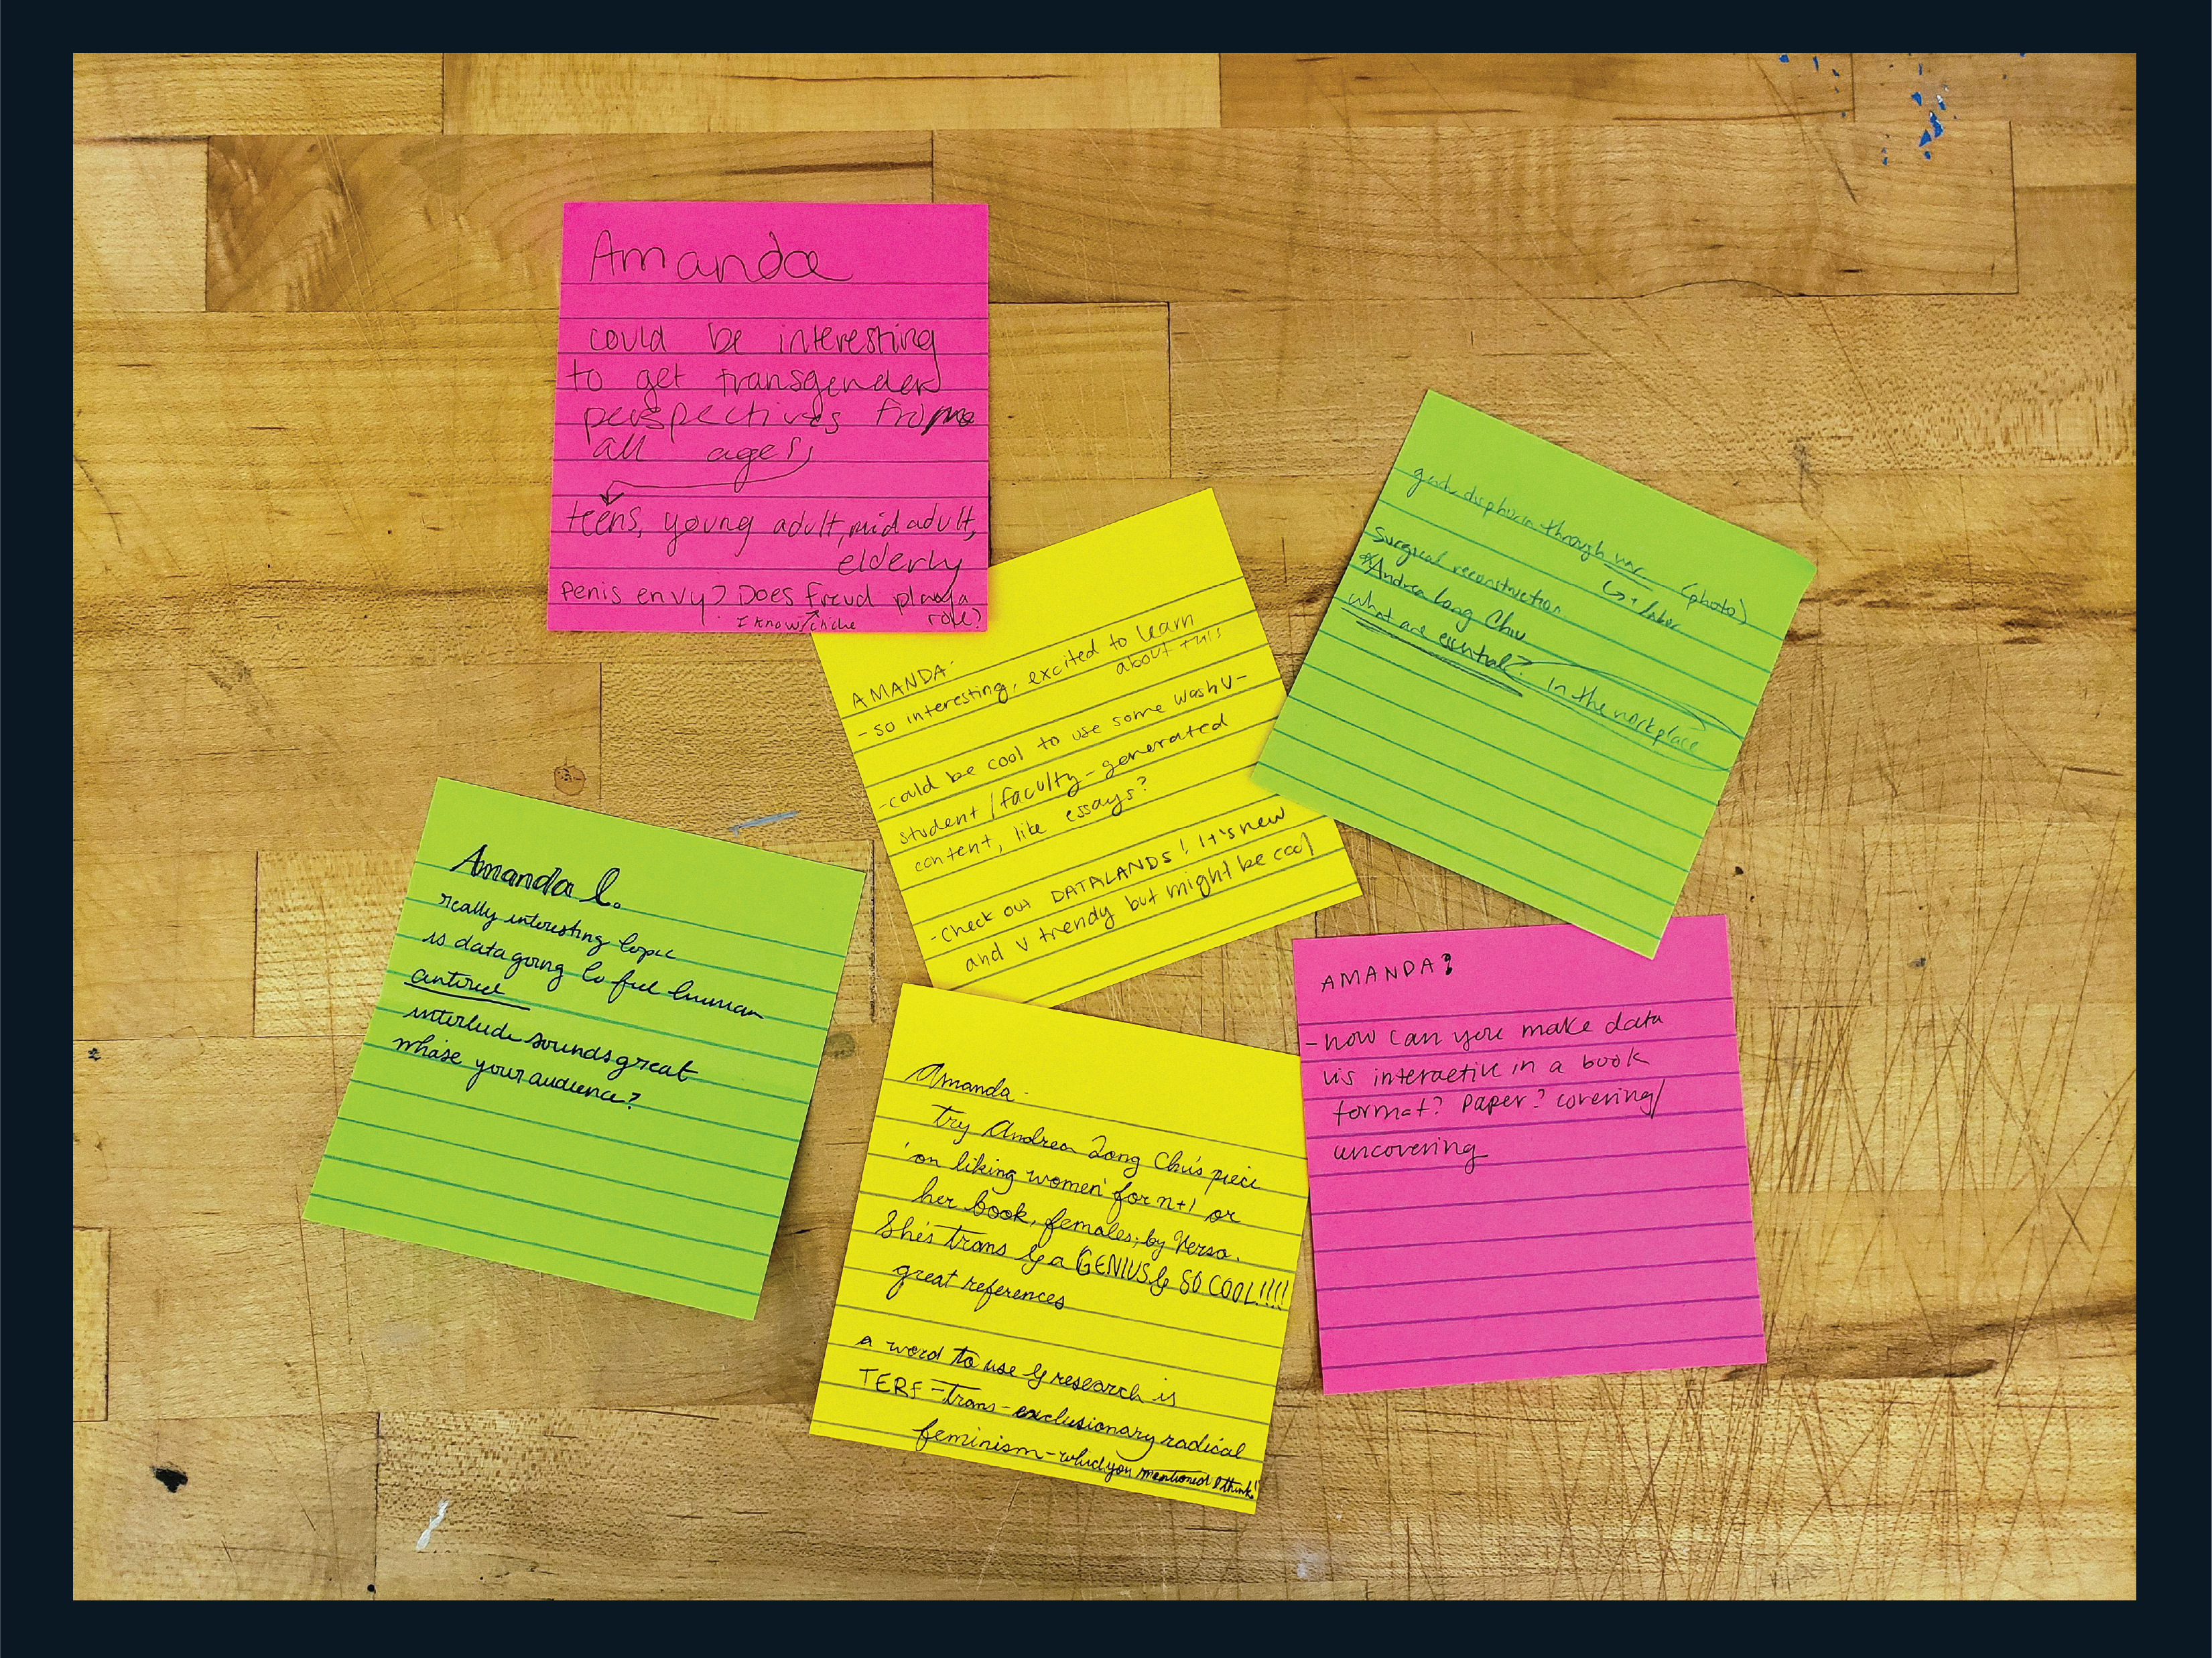 Amanda
could be interesting
to get transgender
perspectives from
all ages
teens, young adult, mid adult,
elderly
penis envy? Does freud play a
role?
I know cliche
AMANDA-
- so interesting, excited to learn
about this
- could be cool to use some WashU-
student / faculty - generated
content, like essays?
- check out DATALANDS! It's new
and v trendy but might be cool
through (photo)
Surgical reconstruction
*Andrea Long Chu
what are essential? in the workplace
Amanda L.
really interesting topic
is data going to feel human
interlude sounds great
whose your audience?
Amanda-
try Andrea Long Chu's piece
'on liking women' for n+1 or
her book, females, by Verso.
She's trans & a GENIUS & SO COOL!!!!
great references
a word to use & research is
TERF - trans-exclusionary radical
feminism - which you mentioned I think!
AMANDA:
- how can you make data
vis interactive in a book
format? paper? covering/
uncovering